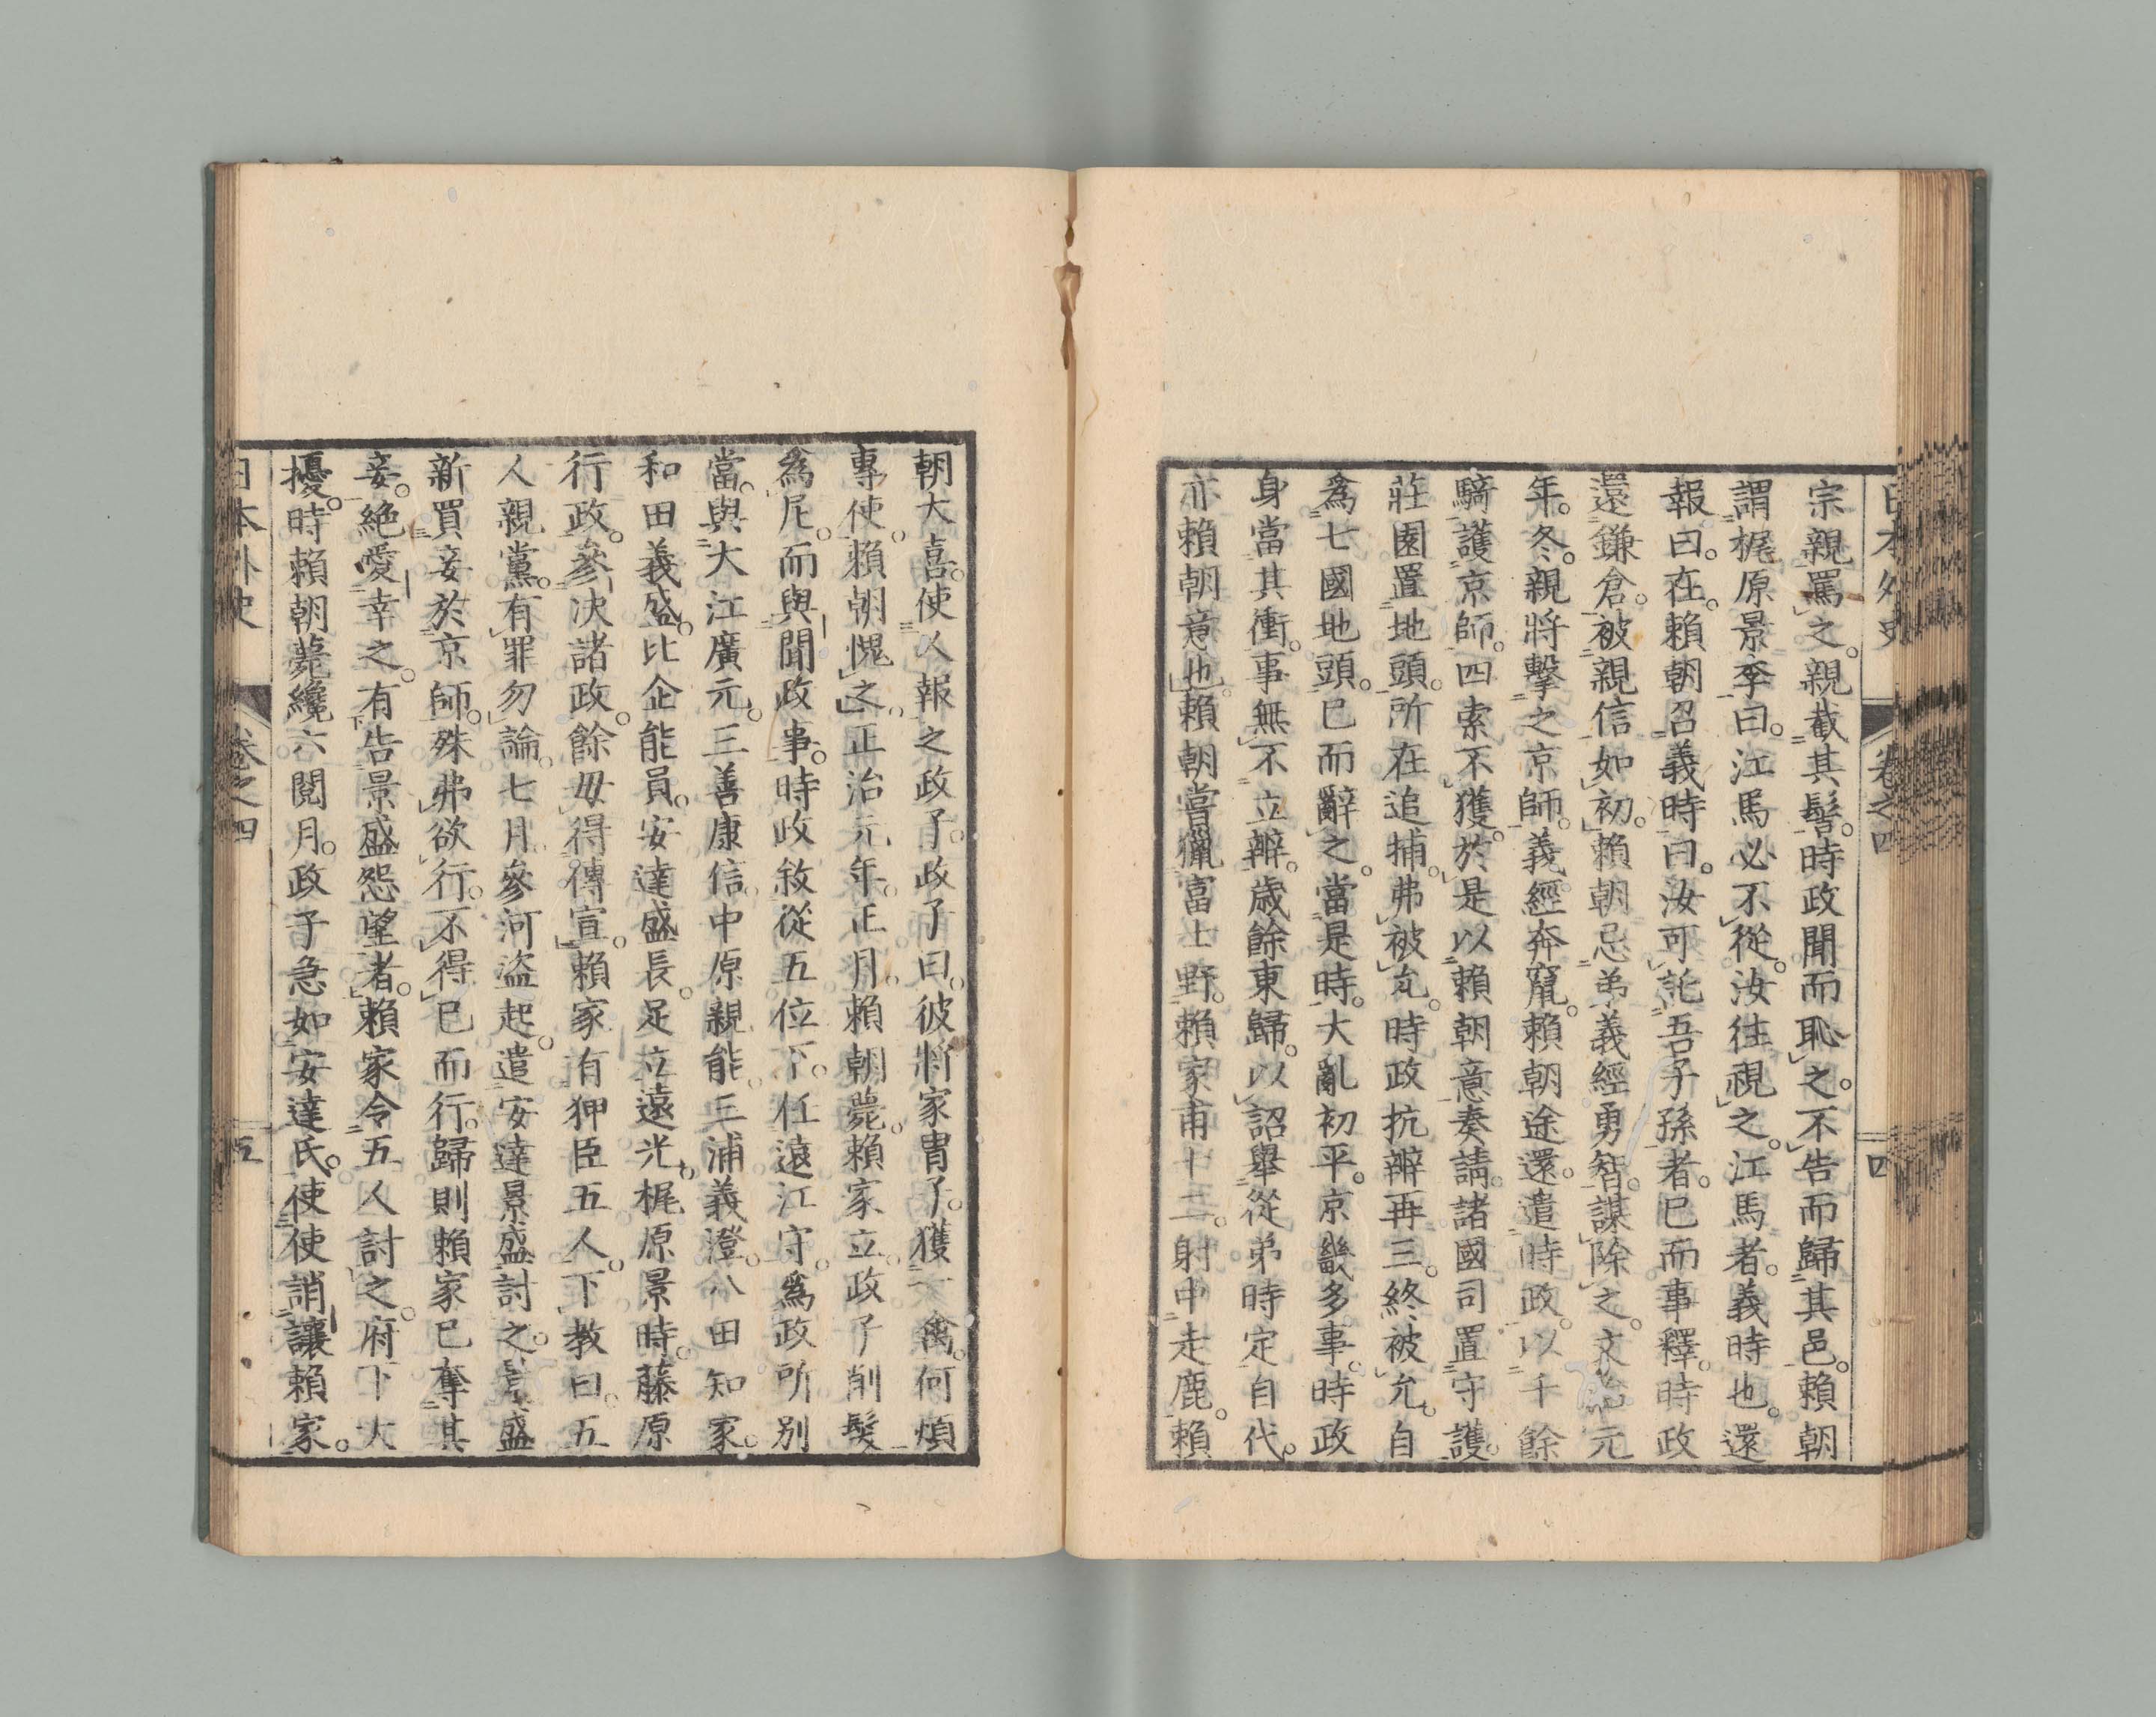 日本外史 卷之四 四
宗親罵之。親截其髻。時政聞而恥之。不告而歸其邑。賴朝
謂梶原景季曰。江馬必不從。汝往視之。江馬者。義時也。還
報曰。在。賴朝召義時曰。汝可託吾子孫者。已而事釋。時政
還鎌倉。被親信如初。賴朝忌弟義經勇智。謀除之。文治元
年。冬。親將擊之京師。義經奔竄。賴朝途還。遣時政。以千餘
騎護京師。四索不獲。於是以賴朝意奏請。諸國司置守護。
莊園置地頭。所在追捕。弗被允。時政抗辯再三。終被允。自
爲七國地頭。已而辭之。當是時。大亂初平。京畿多事。時政
身當其衝。事無不立辦。歲餘東歸。以詔舉從弟時定自代。
亦賴朝意也。賴朝嘗獵富士野。賴家甫十二。射中走鹿。賴
朝大喜。使人報之政子。政子曰。彼將家冑子。獲一禽。何煩
專使。賴朝愧之。正治元年。正月。賴朝薨。賴家立。政子削髮
爲尼。而與聞政事。時政敘從五位下。任遠江守。爲政所別
當。與大江廣元。三善康信。中原親能。三浦義澄。八田知家。
和田義盛。比企能員。安達盛長。足立遠光。梶原景時。藤原
行政。參決諸政。餘毋得傳宣。賴家有狎臣五人。下教曰。五
人親黨。有罪勿論。七月。參河盜起。遣安達景盛討之。景盛
新買妾於京師。殊弗欲行。不得已而行。歸則賴家已奪其
妾。絕愛幸之。有告景盛怨望者。賴家令五人討之。府下大
擾。時賴朝薨纔六閱月。政子急如安達氏。使使誚讓賴家。
日本外史 卷之四 五